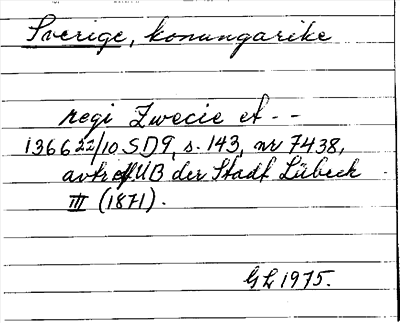 Sverige, konungarike
regi Zwecie et - -
1366 22/10 SD9, s. 143, nr 7438,
avtr ef UB der Stadt Lübeck
III (1871).
GL 1975.